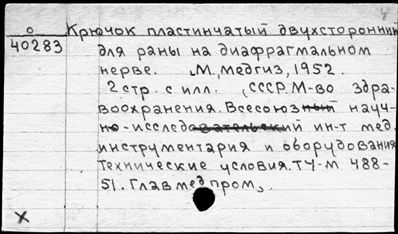 О
40283
Крючок пластинчатый двухсторонний
для раны на диафрагмальном
нерве. М., Медгиз, 1952.
2 стр. с илл. (СССР. М-во здра-
воохранения. Всесоюзный науч-
но-исследовательский ин-т мед.
инструментария и оборудования
Технические условия. ТУ-М 488-
51. Главмедпром).
X